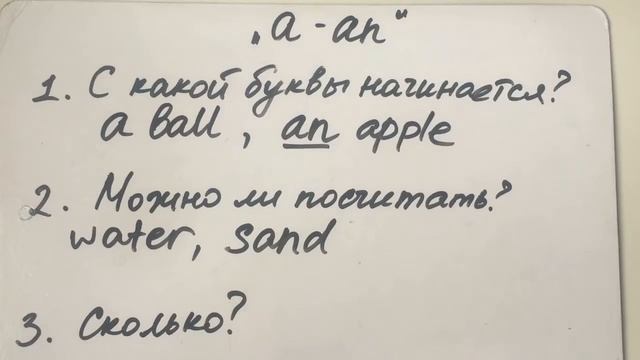 „a - an"
1. С какой буквы начинается?
a ball, an apple
2. Можно ли посчитать?
water, sand
3. Сколько?